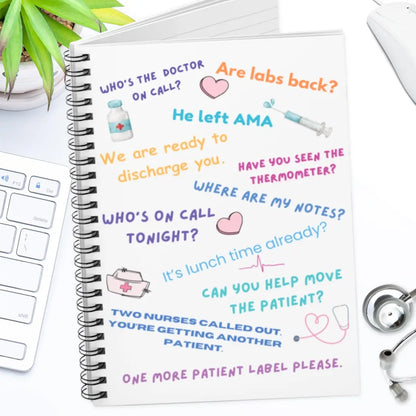 WHO'S THE DOCTOR
ON CALL?
Are labs back?
He left AMA
We are ready to
discharge you.
HAVE YOU SEEN THE
THERMOMETER?
WHERE ARE MY NOTES?
WHO'S ON CALL
TONIGHT?
It's lunch time already?
CAN YOU HELP MOVE
THE PATIENT?
TWO NURSES CALLED OUT,
YOU'RE GETTING ANOTHER
PATIENT.
ONE MORE PATIENT LABEL PLEASE.